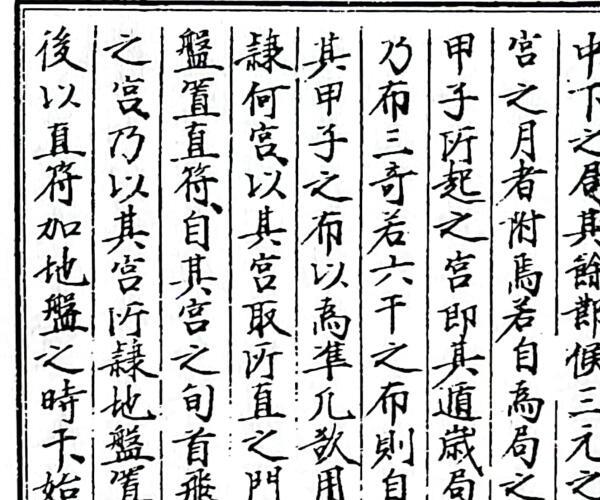 中下之局其餘鄰候三元之
宮之月者附焉若自為局之
甲子所起之宮即其遁歲局
乃布三奇若六干之布則自
其甲子之布以為準凡欲用
隸何宮以其宮取所直之門
盤置直符自其宮之旬首飛
之宮乃以其宮所隸地盤置
後以直符加地盤之時干始